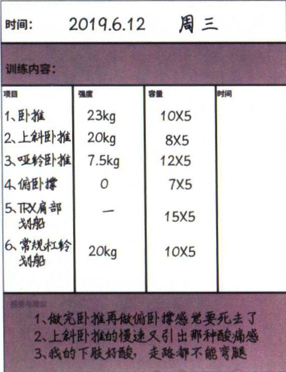 时间： 2019.6.12 周三
训练内容：
项目 强度 容量 时间
1、卧推 23kg 10X5
2、上斜卧推 20kg 8X5
3、哑铃卧推 7.5kg 12X5
4、俯卧撑 0 7X5
5、TRX肩部
划船 — 15X5
6、常规杠铃
划船 20kg 10X5
1、做完卧推再做俯卧撑感觉要死去了
2、上斜卧推的慢速又引出那种酸痛感
3、我的下肢好酸，走路都不能弯腿